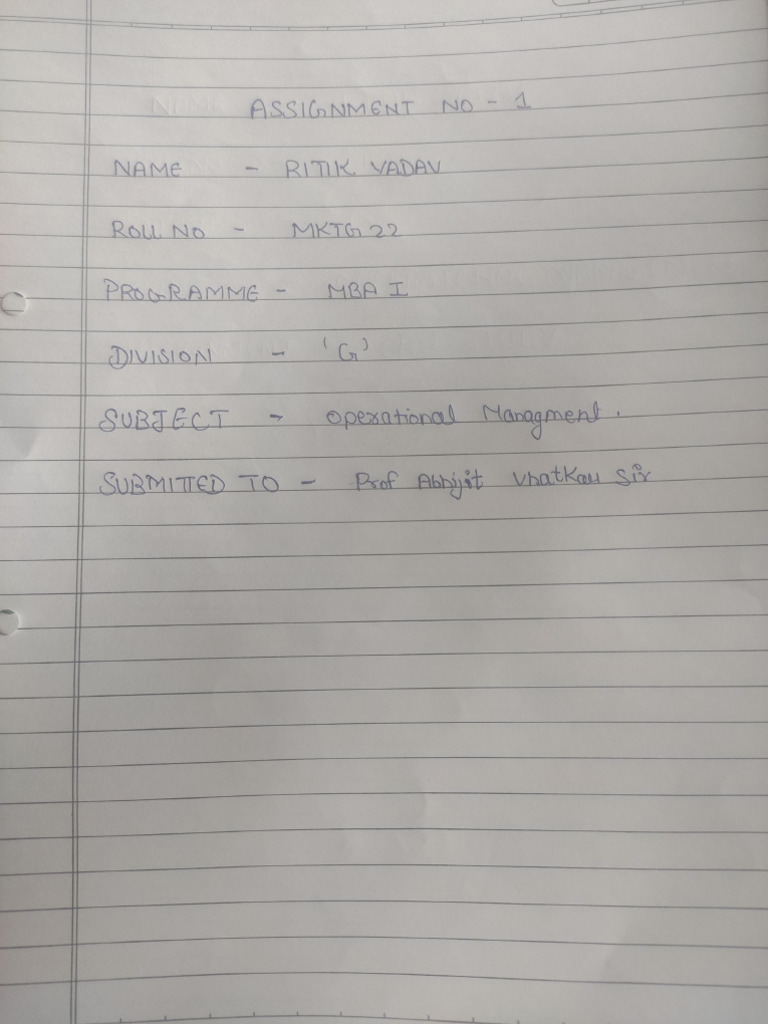 ASSIGNMENT NO - 1
NAME - RITIK YADAV
ROLL NO - MKTG 22
PROGRAMME - MBA I
DIVISION - 'G'
SUBJECT - Operational Managment.
SUBMITTED TO - Prof Abhijit Vhatkar Sir